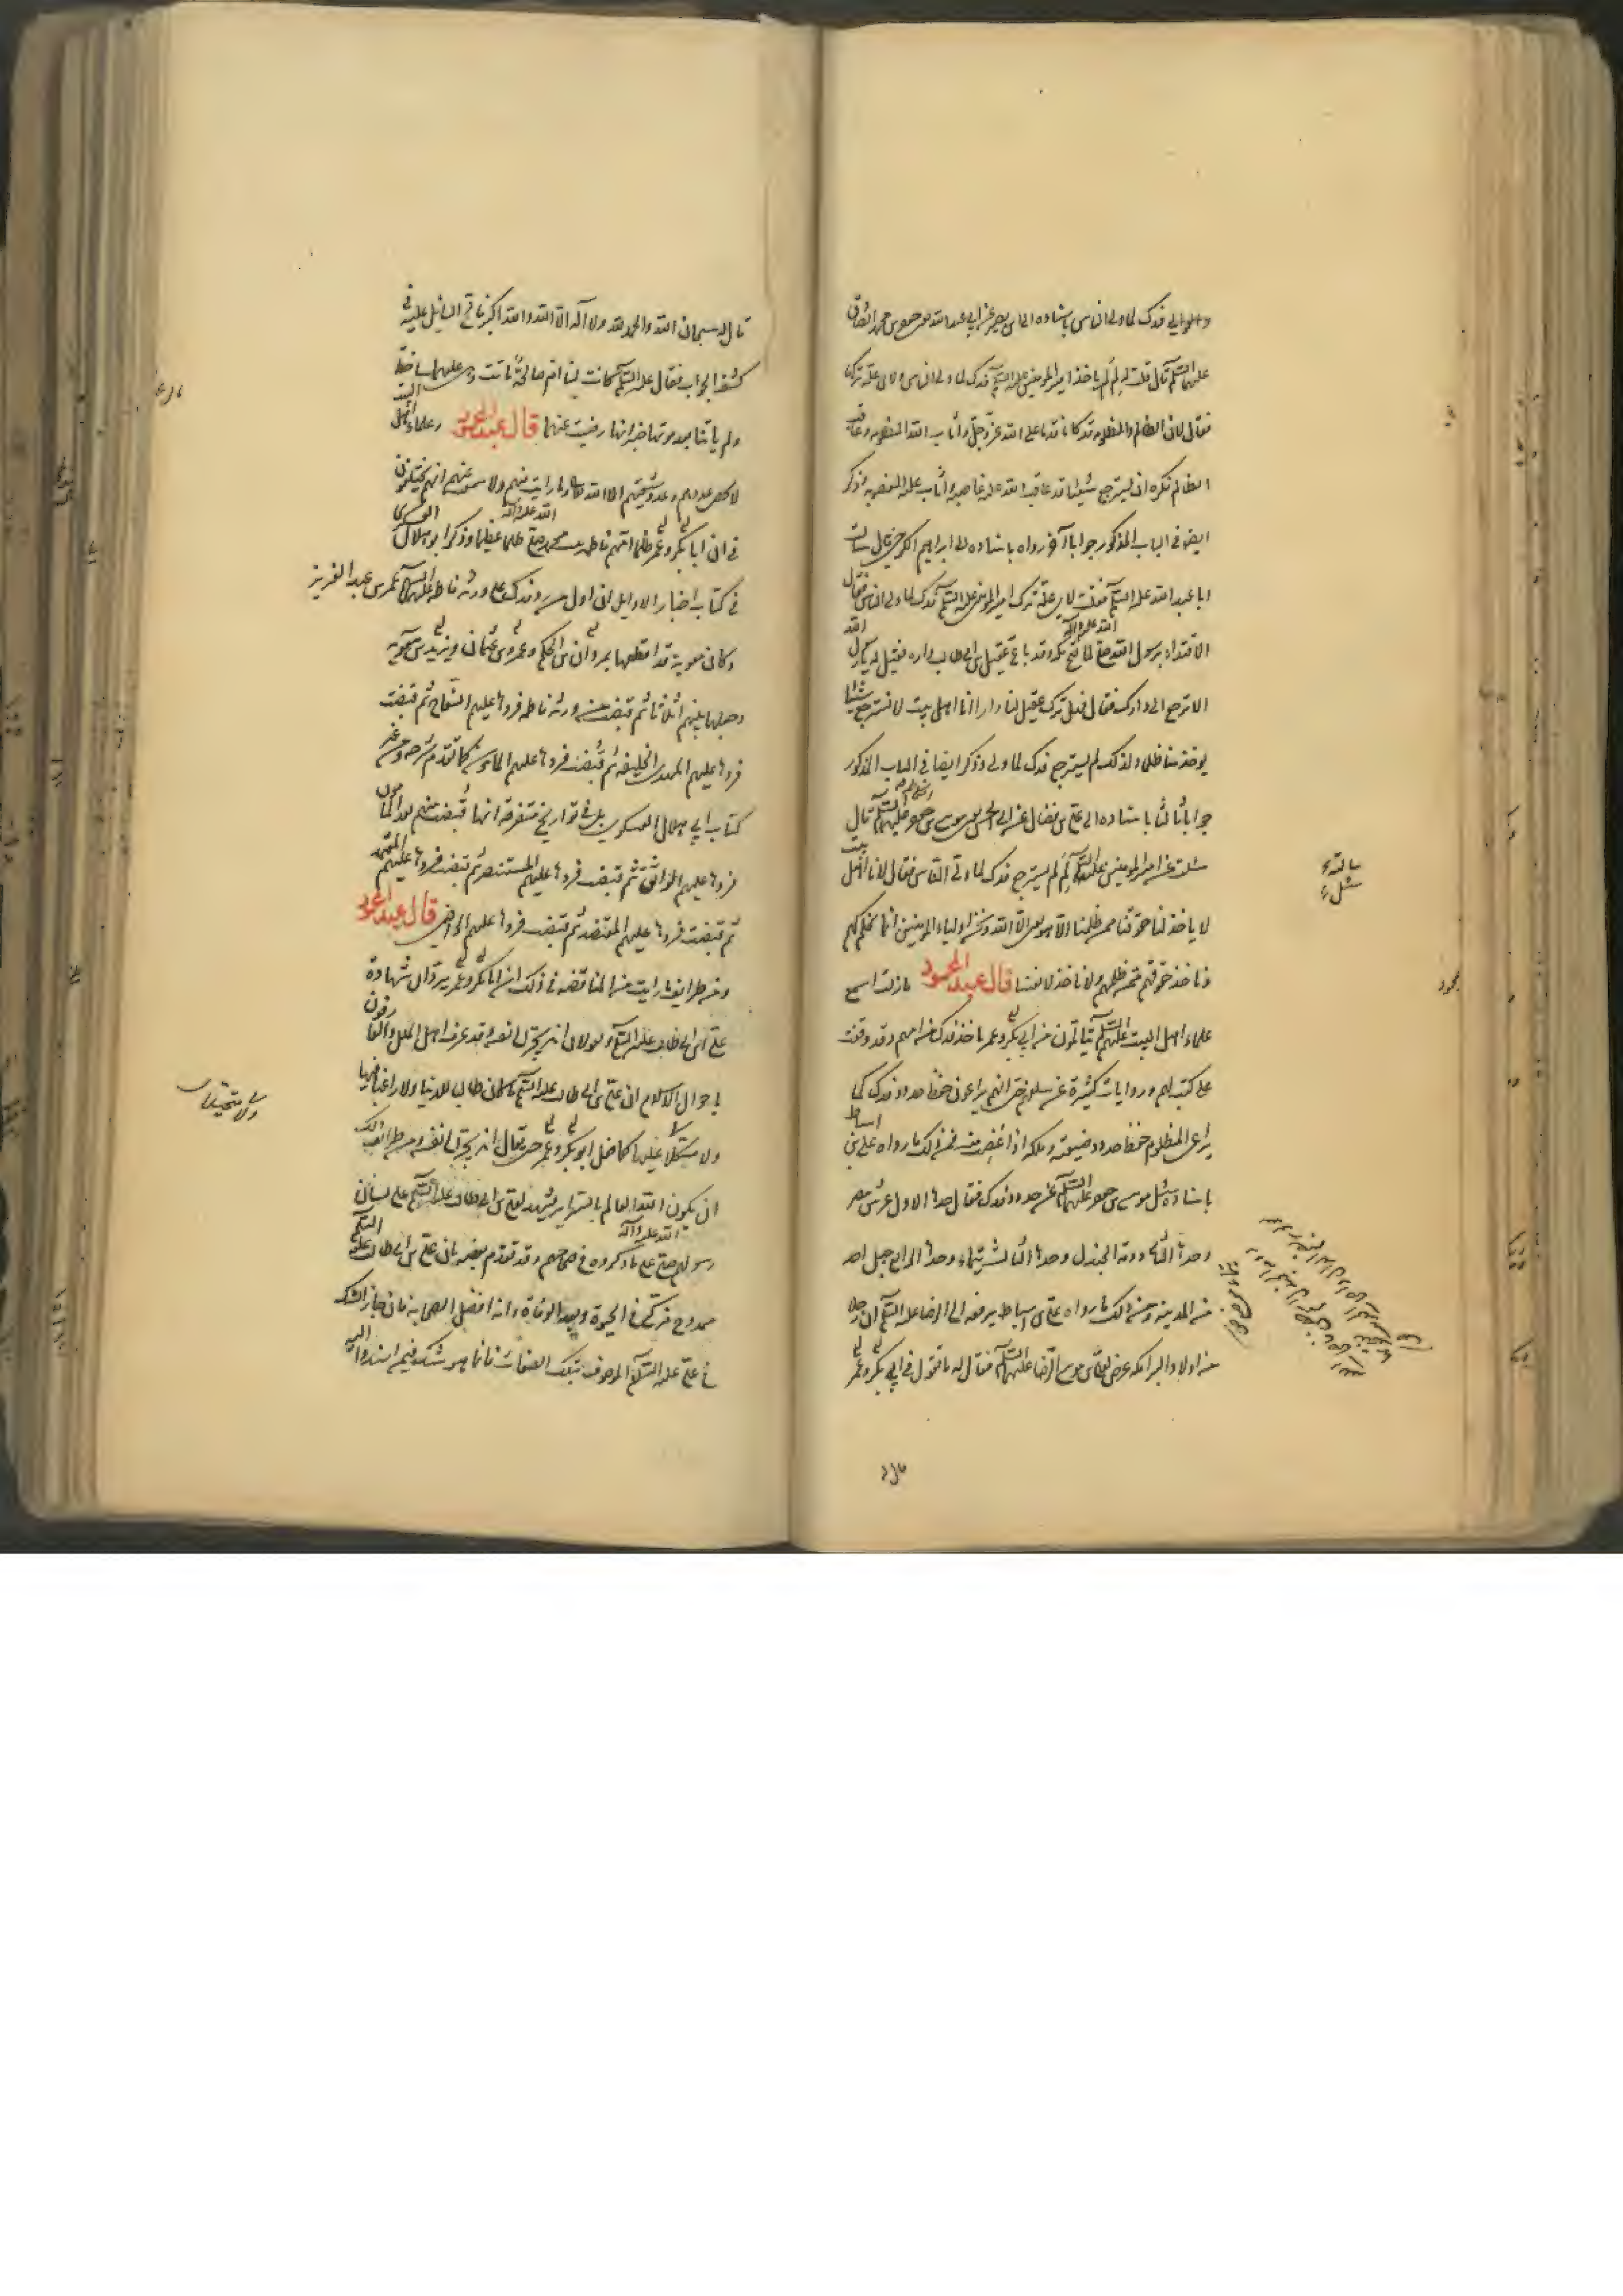 فدك لما ولي الناس باسناده الى ابي بصير عن ابي عبد الله جعفر بن محمد الصادق
عليهما السلم قال قلت له لم لم ياخذ امير المؤمنين عليه السلم فدك لما ولي الناس ولاى علة تركها
فقال لان الظالم والمظلومة قد كانا قدما على الله عز وجل واثاب الله المظلومة وعاقب
الظالم فكره ان يسترجع شيئا قد عاقب الله عليه غاصبه واثاب عليه المغصوبة وذكر
ايضا في الباب المذكور جوابا آخر رواه باسناده الى ابراهيم الكرخي قال سالت
ابا عبد الله عليه السلم فقلت لاى علة ترك امير المؤمنين عليه السلم فدك لما ولي الناس فقال
الاقتداء برسول الله صلى الله عليه وآله لما فتح مكة وقد باع عقيل بن ابي طالب داره فقيل له يا رسول الله
الا ترجع الى دارك فقال وهل ترك عقيل لنا دارا انا اهل بيت لا نسترجع شيئا
يوخذ منا ظلما ولذلك لم يسترجع فدك لما ولي وذكر ايضا في الباب المذكور
جوابا ثالثا باسناده الى علي بن فضال عن ابي الحسن موسى بن جعفر عليهما السلم قال
سالته عن امير المؤمنين عليه السلم لم لم يسترجع فدك لما ولي الناس فقال لانا اهل بيت
لا ياخذ لنا حقوقنا ممن ظلمنا الا هو يعنى الا الله ونحن اولياء المؤمنين انما نحكم لهم
وناخذ حقوقهم ممن ظلمهم ولا ناخذ لانفسنا قال عبد المحمود ما زلت اسمع
علماء اهل البيت عليهم السلم يتالمون من ابي بكر وعمر باخذ فدك من امهم وقد وقفت
على كتب لهم وروايات كثيرة عن سلفهم حتى انهم يراعون حفظ حدود فدك كما
يراعى المظلوم حفظ حدود ضيعته وملكه اذا غصبت منه فمن ذلك ما رواه علي بن اسباط
باسناده سئل موسى بن جعفر عليهما السلم عن حدود فدك فقال حدها الاول عريش مصر
وحدها الثاني دومة الجندل وحدها الثالث تيماء وحدها الرابع جبل احد
من المدينة ومن ذلك ما رواه علي بن اسباط يرفعه الى الرضا عليه السلم ان رجلا
من اولاد البرامكة عرض لعلي بن موسى الرضا عليهما السلم فقال له ما تقول في ابي بكر وعمر
سالته
سئل
قال له سبحان الله والحمد لله ولا آله الا الله والله اكبر فالح السائل عليه في
كشف الجواب فقال عليه السلم كانت لنا ام صالحة ماتت وهى عليهما ساخطة
ولم ياتنا بعد موتها خبر انها رضيت عنهما قال عبد المحمود وعلماء اهل البيت
لا يحصى عددهم وعدد شيعتهم الا الله تعالى وما رايت منهم ولا سمعت عنهم انهم يختلفون
في ان ابا بكر وعمر ظلما امهم فاطمه بنت محمد صلى الله عليه وآله ظلما عظيما وذكر ابو هلال العسكرى
في كتاب اخبار الاوايل ان اول من رد فدك على ورثة فاطمه عليها السلم عمر بن عبد العزيز
وكان معوية قد اقطعها لمروان بن الحكم وعمرو بن عثمان ويزيد بن معوية
وجعلها بينهم اثلاثا ثم قبضت من ورثة فاطمه فردها عليهم السفاح ثم قبضت
فردها عليهم المهدى الخليفه ثم قبضت فردها عليهم المامون كما تقدم شرحه وفي غير
كتاب ابي هلال العسكرى بل في تواريخ متفرقه انها قبضت منهم بعد المامون
فردها عليهم الواثق ثم قبضت فردها عليهم المستنصر ثم قبضت فردها عليهم المعتمد
ثم قبضت فردها عليهم المعتضد ثم قبضت فردها عليهم الراضي قال عبد المحمود
ومن طرايف ما رايت من المناقضه في ذلك ان ابا بكر وعمر يردان شهادة
علي بن ابي طالب عليه السلم ويقولان انه يجر الى نفسه وقد عرف اهل الملل والعارفون
باحوال الاسلام ان علي بن ابي طالب عليه السلم ما كان طالبا للدنيا ولا راغبا فيها
ولا متكلا عليها كما فعل ابو بكر وعمر حتى يقال انه يجر الى نفسه ومن طرايف ذلك
ان يكون الله العالم بالسراير يشهد لعلي بن ابي طالب عليه السلم على لسان
رسوله صلى الله عليه وآله على ما ذكروه في صحاحهم وقد تقدم بعضه بان علي بن ابي طالب عليه السلم
ممدوح مزكى في الحيوة وبعد الوفاة وانه افضل الصحابه فان جاز الشك
في علي عليه السلم الموصوف بتلك الصفات فانما هو شك فيمن اسندوا اليه